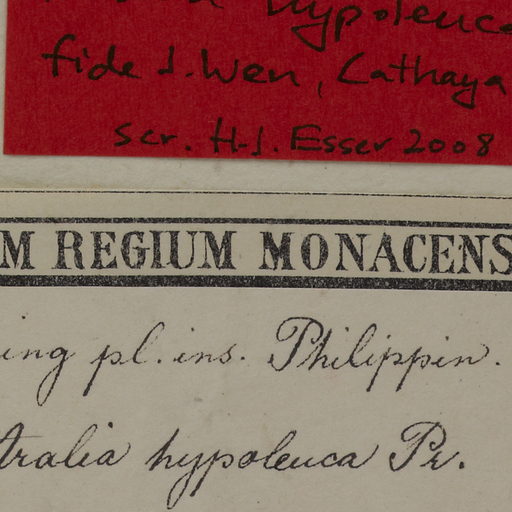 hypoleuca
fide J. Wen, Cathaya
scr. H.-J. Esser 2008
M REGIUM MONACENS
ing pl. ins. Philippin.
tralia hypoleuca Pr.